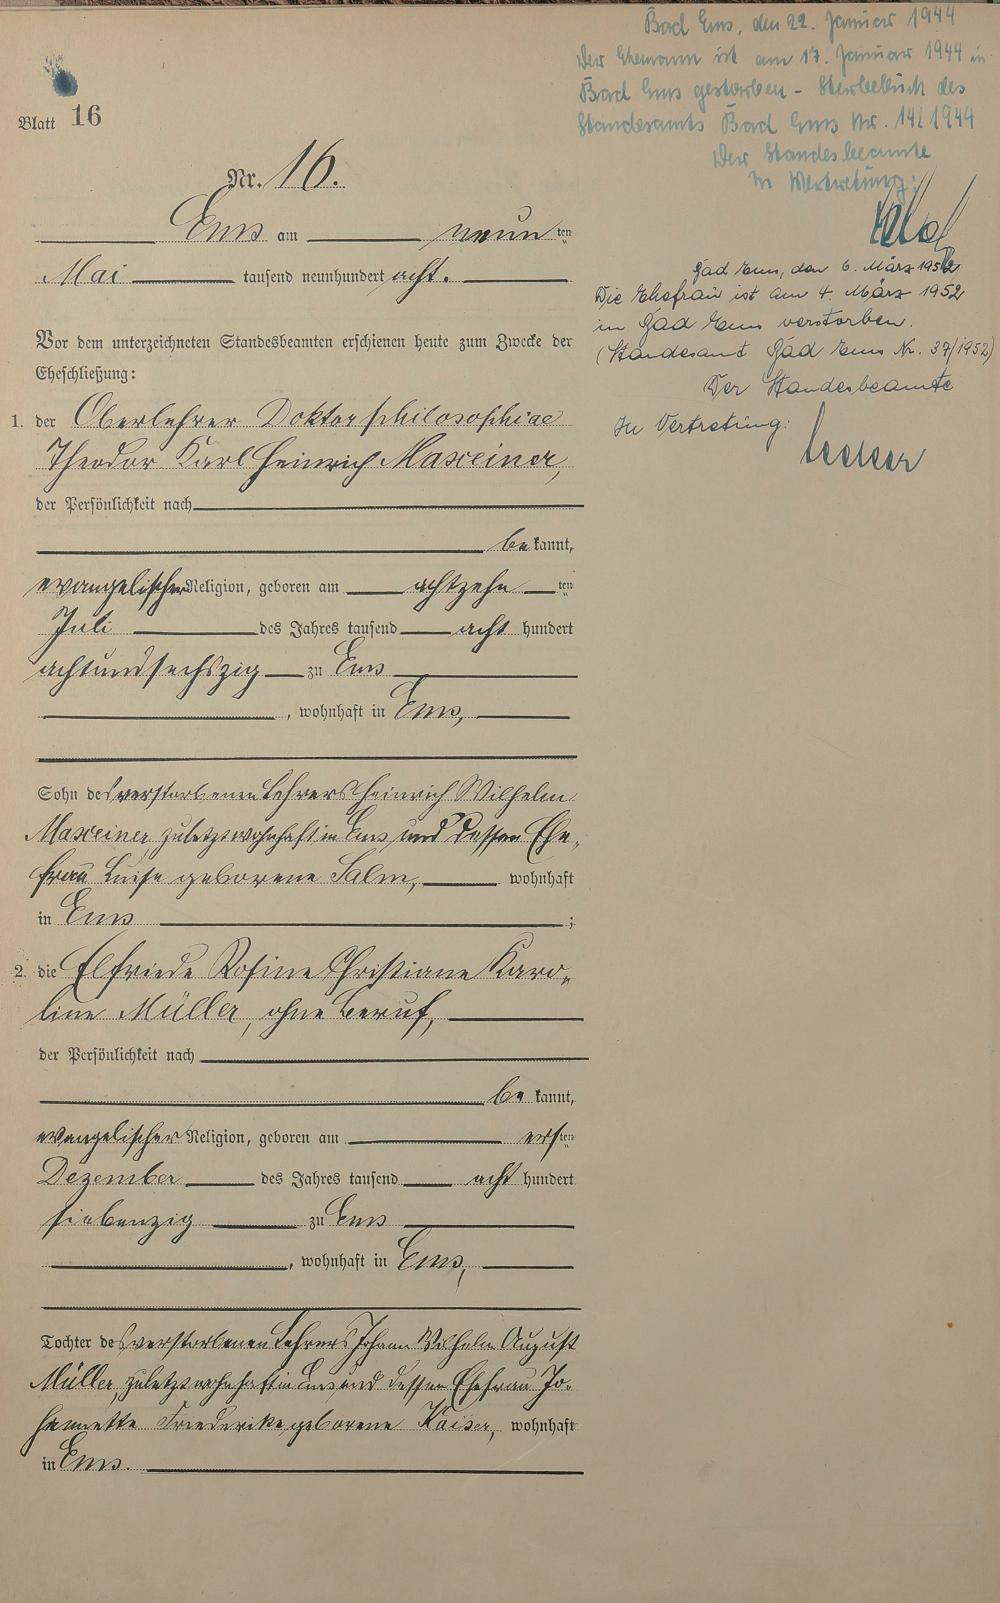 Blatt 16
Nr. 16.
Ems am neun ten
Mai tausend neunhundert acht.
Vor dem unterzeichneten Standesbeamten erschienen heute zum Zwecke der
Eheschließung:
1. der Oberlehrer Doktor philosophiae
Theodor Karl Heinrich Maxeiner,
der Persönlichkeit nach
be kannt,
evangelischer Religion, geboren am achtzehn ten
Juli des Jahres tausend acht hundert
achtundsechszig zu Ems
, wohnhaft in Ems,
Sohn des verstorbenen Lehrers Heinrich Wilhelm
Maxeiner, zuletzt wohnhaft in Ems und dessen Ehe-
frau Luise geborene Salm, wohnhaft
in Ems ;
2. die Elfriede Rosine Christiane Karo-
line Müller, ohne Beruf,
der Persönlichkeit nach
be kannt,
evangelischer Religion, geboren am ers ten
Dezember des Jahres tausend acht hundert
siebenzig zu Ems
, wohnhaft in Ems,
Tochter des verstorbenen Lehrers Johann Wilhelm August
Müller, zuletzt wohnhaft in Ems und dessen Ehefrau Jo-
hannette Friederike geborene Kaiser, wohnhaft
in Ems.
Bad Ems, den 22. Januar 1944
Der Ehemann ist am 17. Januar 1944 in
Bad Ems gestorben - Sterbebuch des
Standesamts Bad Ems Nr. 14/1944
Der Standesbeamte
In Vertretung:
Bad Ems, den 6. März 1952
Die Ehefrau ist am 4. März 1952
in Bad Ems verstorben.
(Standesamt Bad Ems Nr. 37/1952)
Der Standesbeamte
In Vertretung: